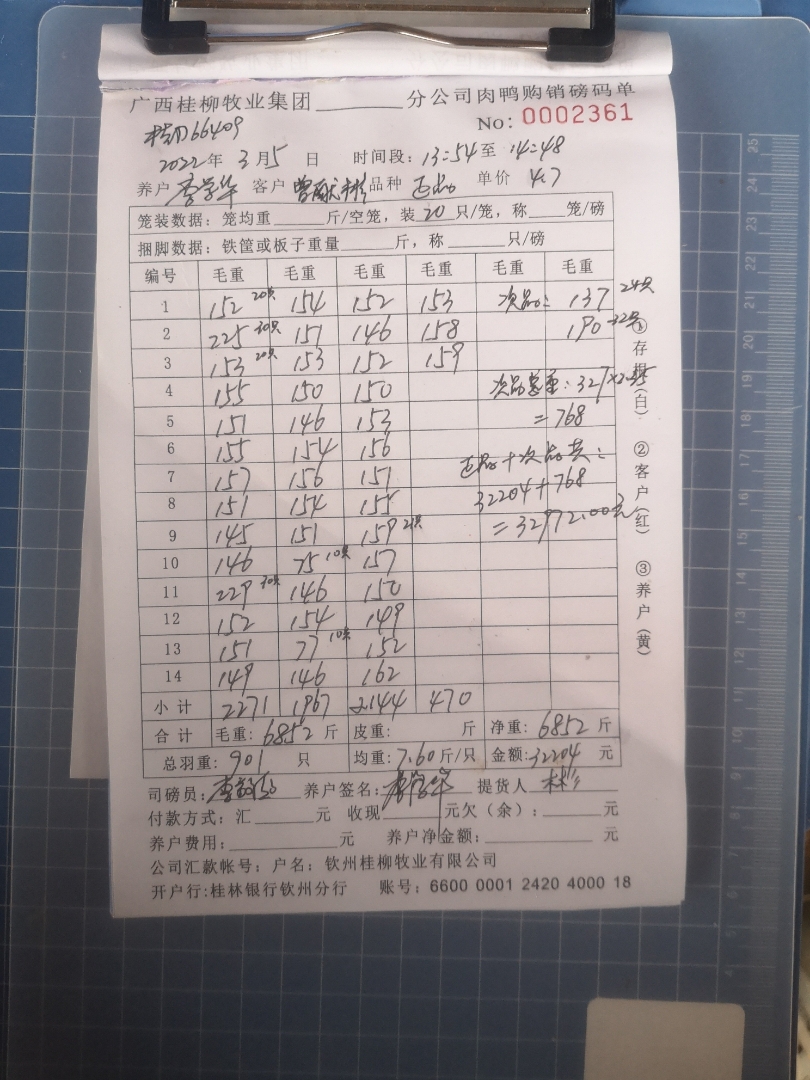 广西桂柳牧业集团________分公司肉鸭购销磅码单
No: 0002361
66409
2022年 3月5 日 时间段: 13:54 至 14:48
养户 李学华 客户 曾献彬 品种 正品 单价 4.7
笼装数据: 笼均重______斤/空笼, 装 20 只/笼, 称____笼/磅
捆脚数据: 铁筐或板子重量______斤, 称______只/磅
编号 毛重 毛重 毛重 毛重 毛重 毛重
1 152 20只 154 152 153 次品: 137 24只
2 225 30只 151 146 158 190 32只
3 153 20只 153 152 159
4 155 150 150 次品总重: 327×2.35
5 151 146 153 =768
6 155 154 156
7 157 156 151 正品+次品共:
8 151 154 155 32204+768
9 145 151 159 21只 =32972.00元
10 146 75 10只 157
11 229 30只 146 150
12 152 154 149
13 151 77 10只 152
14 149 146 162
小计 2271 1967 2144 470
合计 毛重: 6852 斤 皮重: 斤 净重: 6852 斤
总羽重: 901 只 均重: 7.60 斤/只 金额: 32204 元
司磅员: 养户签名: 李学华 提货人 林
付款方式: 汇______元 收现______元欠(余): ______元
养户费用: __________元 养户净金额: __________元
公司汇款帐号: 户名: 钦州桂柳牧业有限公司
开户行:桂林银行钦州分行 账号: 6600 0001 2420 4000 18
①存根(白)
②客户(红)
③养户(黄)
25
24
23
22
21
20
19
18
17
16
15
14
13
12
11
10
9
8
7
6
5
4